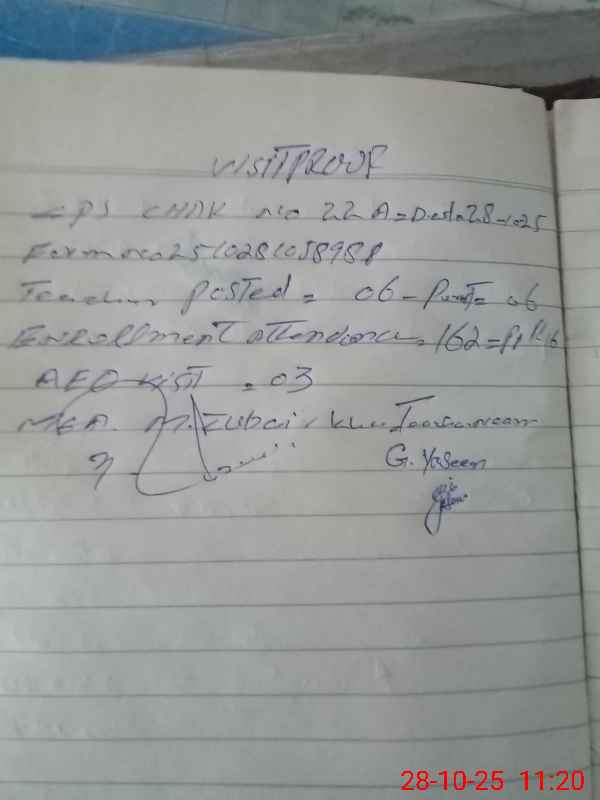 VISIT PROOF
PS CHAK no 22 A = Date 28-1025
Form no 2510281058988
Teacher posted = 06 - = 06
Enrollment attendance = 162 =
AEO visit = 03
MEA. M. Zubair
G. Yaseen
28-10-25 11:20